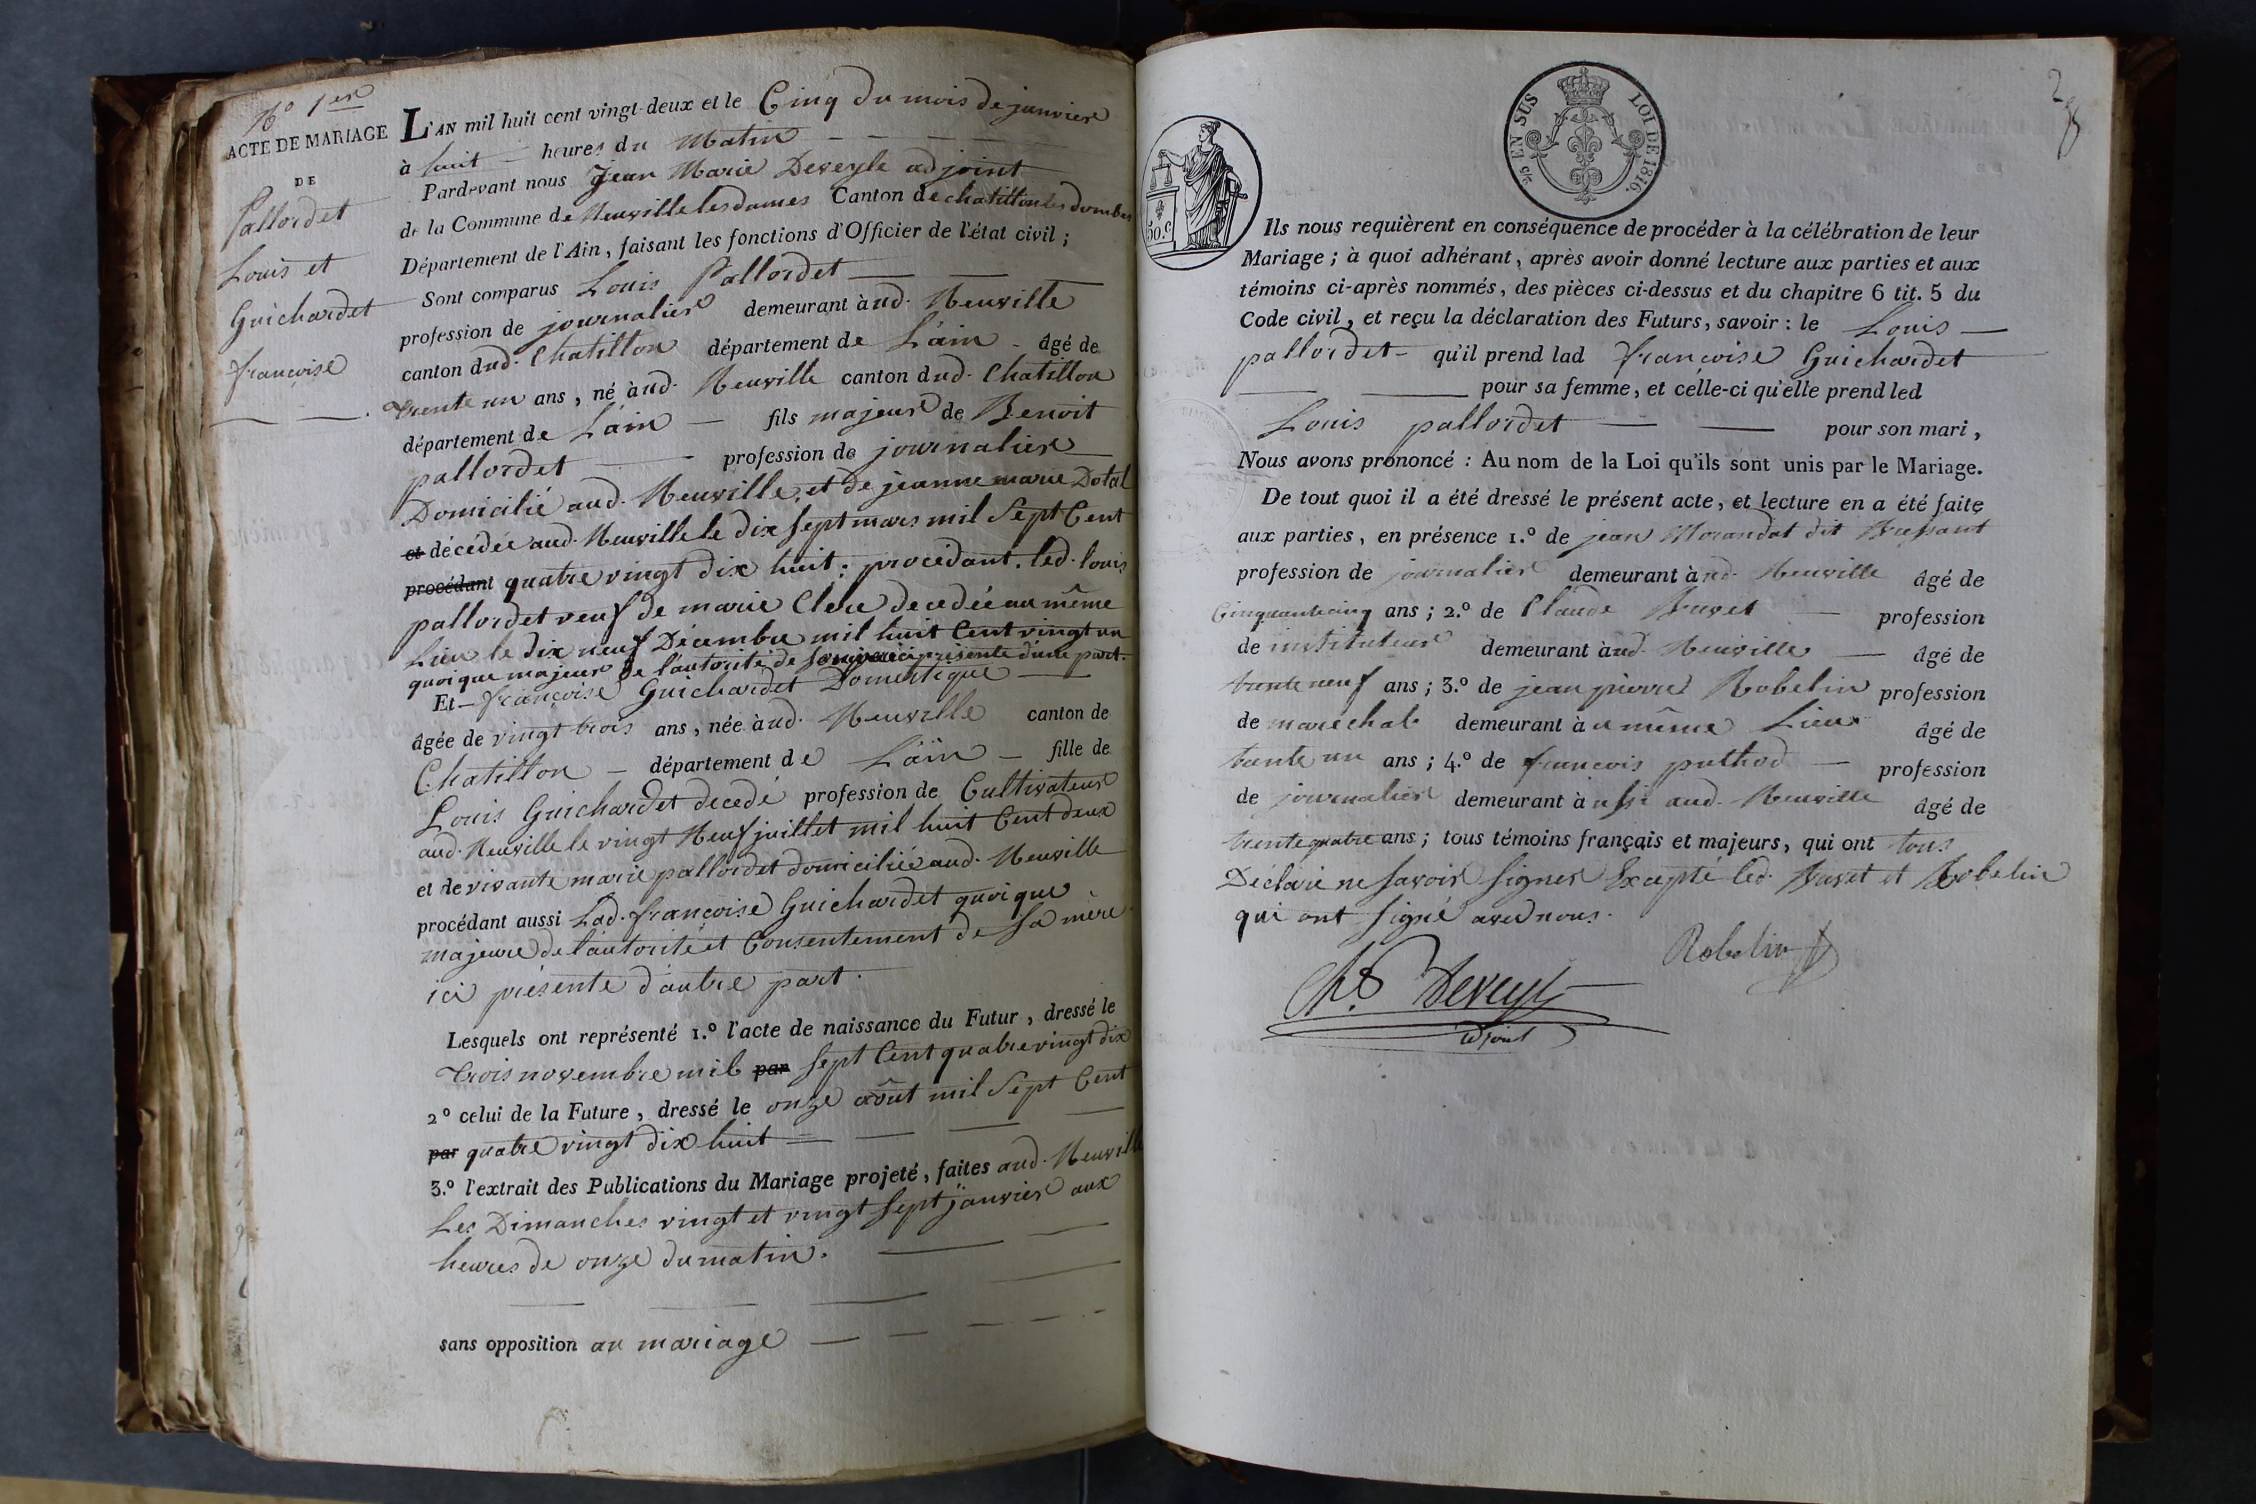 N° 1er
ACTE DE MARIAGE
DE
Pallordet
Louis et
Guichardet
françoise
L'AN mil huit cent vingt-deux et le Cinq du mois de janvier
à huit heures du Matin
Pardevant nous Jean Marie Deveyle adjoint
de la Commune de Neuville les dames Canton de chatillon les dombes
Département de l'Ain, faisant les fonctions d'Officier de l'état civil ;
Sont comparus Louis Pallordet
profession de journalier demeurant àud. Neuville
canton dud. Chatillon département de L'ain âgé de
trente un ans, né àud. Neuville canton dud. Chatillon
département de L'ain fils majeur de Benoit
pallordet profession de journalier
Domicilié aud. Neuville, et de jeanne marie Dotal
et décédée aud. Neuville le dix sept mars mil Sept Cent
procédant quatre vingt dix huit ; procédant. led. louis
pallordet veuf de marie Clere decedée au même
Lieu le dix neuf Décembre mil huit Cent vingt un
quoique majeur de l'autorité de son père ici présente d'une part.
Et françoise Guichardet Domestique
âgée de vingt trois ans, née àud. Neuville canton de
Chatillon département de L'ain fille de
Louis Guichardet decedé profession de Cultivateur
aud. Neuville le vingt Neuf juillet mil huit Cent deux
et de vivante marie pallordet domiciliée aud. Neuville
procédant aussi Lad. françoise Guichardet quoique
majeure de l'autorité et Consentement de Sa mère
ici présente d'autre part.
Lesquels ont représenté 1.° l'acte de naissance du Futur, dressé le
trois novembre mil par Sept Cent quatre vingt dix
2° celui de la Future, dressé le onze août mil Sept Cent
par quatre vingt dix huit
3.° l'extrait des Publications du Mariage projeté, faites aud. Neuville
Les Dimanches vingt et vingt Sept janvier aux
heures de onze du matin.
sans opposition au mariage
2
50.c
EN SUS LOI DE 1816.
Ils nous requièrent en conséquence de procéder à la célébration de leur
Mariage ; à quoi adhérant, après avoir donné lecture aux parties et aux
témoins ci-après nommés, des pièces ci-dessus et du chapitre 6 tit. 5 du
Code civil, et reçu la déclaration des Futurs, savoir : le Louis
pallordet qu'il prend lad françoise Guichardet
pour sa femme, et celle-ci qu'elle prend led
Louis pallordet pour son mari,
Nous avons prononcé : Au nom de la Loi qu'ils sont unis par le Mariage.
De tout quoi il a été dressé le présent acte, et lecture en a été faite
aux parties, en présence 1.° de jean Morandat dit Bressant
profession de journalier demeurant àud. Neuville âgé de
Cinquante cinq ans ; 2.° de Claude Buvet profession
de instituteur demeurant àud. Neuville âgé de
trente neuf ans ; 3.° de jean pierre Robelin profession
de maréchal demeurant àu même Lieu âgé de
trente un ans ; 4.° de françois puthod profession
de journalier demeurant à ussi aud. Neuville âgé de
trente quatre ans ; tous témoins français et majeurs, qui ont tous
Déclaré ne Savoir Signer Excepté led. Buvet et Robelin
qui ont Signé avec nous.
Robelin
Deveyle
adjoint